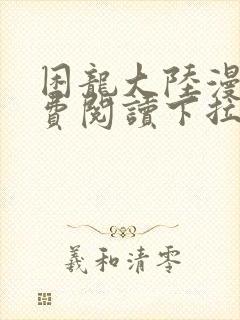 困龍大陸漫
費閱讀下拉
羲和清零